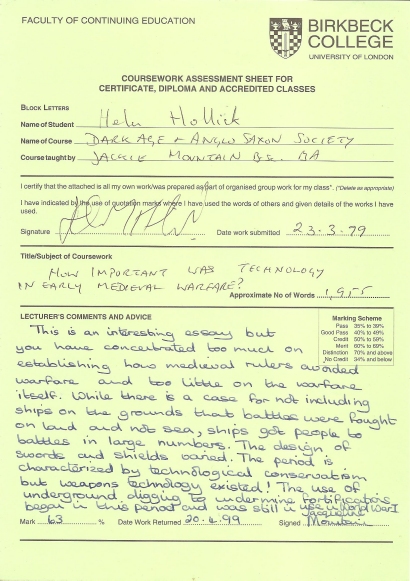 FACULTY OF CONTINUING EDUCATION
BIRKBECK
COLLEGE
UNIVERSITY OF LONDON
COURSEWORK ASSESSMENT SHEET FOR
CERTIFICATE, DIPLOMA AND ACCREDITED CLASSES
BLOCK LETTERS
Name of Student Helen Hollick
Name of Course DARK AGE + ANGLO SAXON SOCIETY
Course taught by JACKIE MOUNTAIN B.Sc. MA
I certify that the attached is all my own work/was prepared as part of organised group work for my class*. (*Delete as appropriate)
I have indicated by the use of quotation marks where I have used the words of others and given details of the works I have
used.
Signature Date work submitted 23-3-99
Title/Subject of Coursework
HOW IMPORTANT WAS TECHNOLOGY
IN EARLY MEDIEVAL WARFARE?
Approximate No of Words 1,955
LECTURER'S COMMENTS AND ADVICE
Marking Scheme
Pass 35% to 39%
Good Pass 40% to 49%
Credit 50% to 59%
Merit 60% to 69%
Distinction 70% and above
No Credit 34% and below
This is an interesting essay but
you have concentrated too much on
establishing how medieval rulers avoided
warfare and too little on the warfare
itself. While there is a case for not including
ships on the grounds that battles were fought
on land and not sea, ships got people to
battles in large numbers. The design of
swords and shields varied. The period is
characterized by technological conservatism
but weapons technology existed! The use of
underground digging to undermine fortifications
began in this period and was still in use in World War I
Mark 63 % Date Work Returned 20.4.99 Signed Jacqueline
Mountain